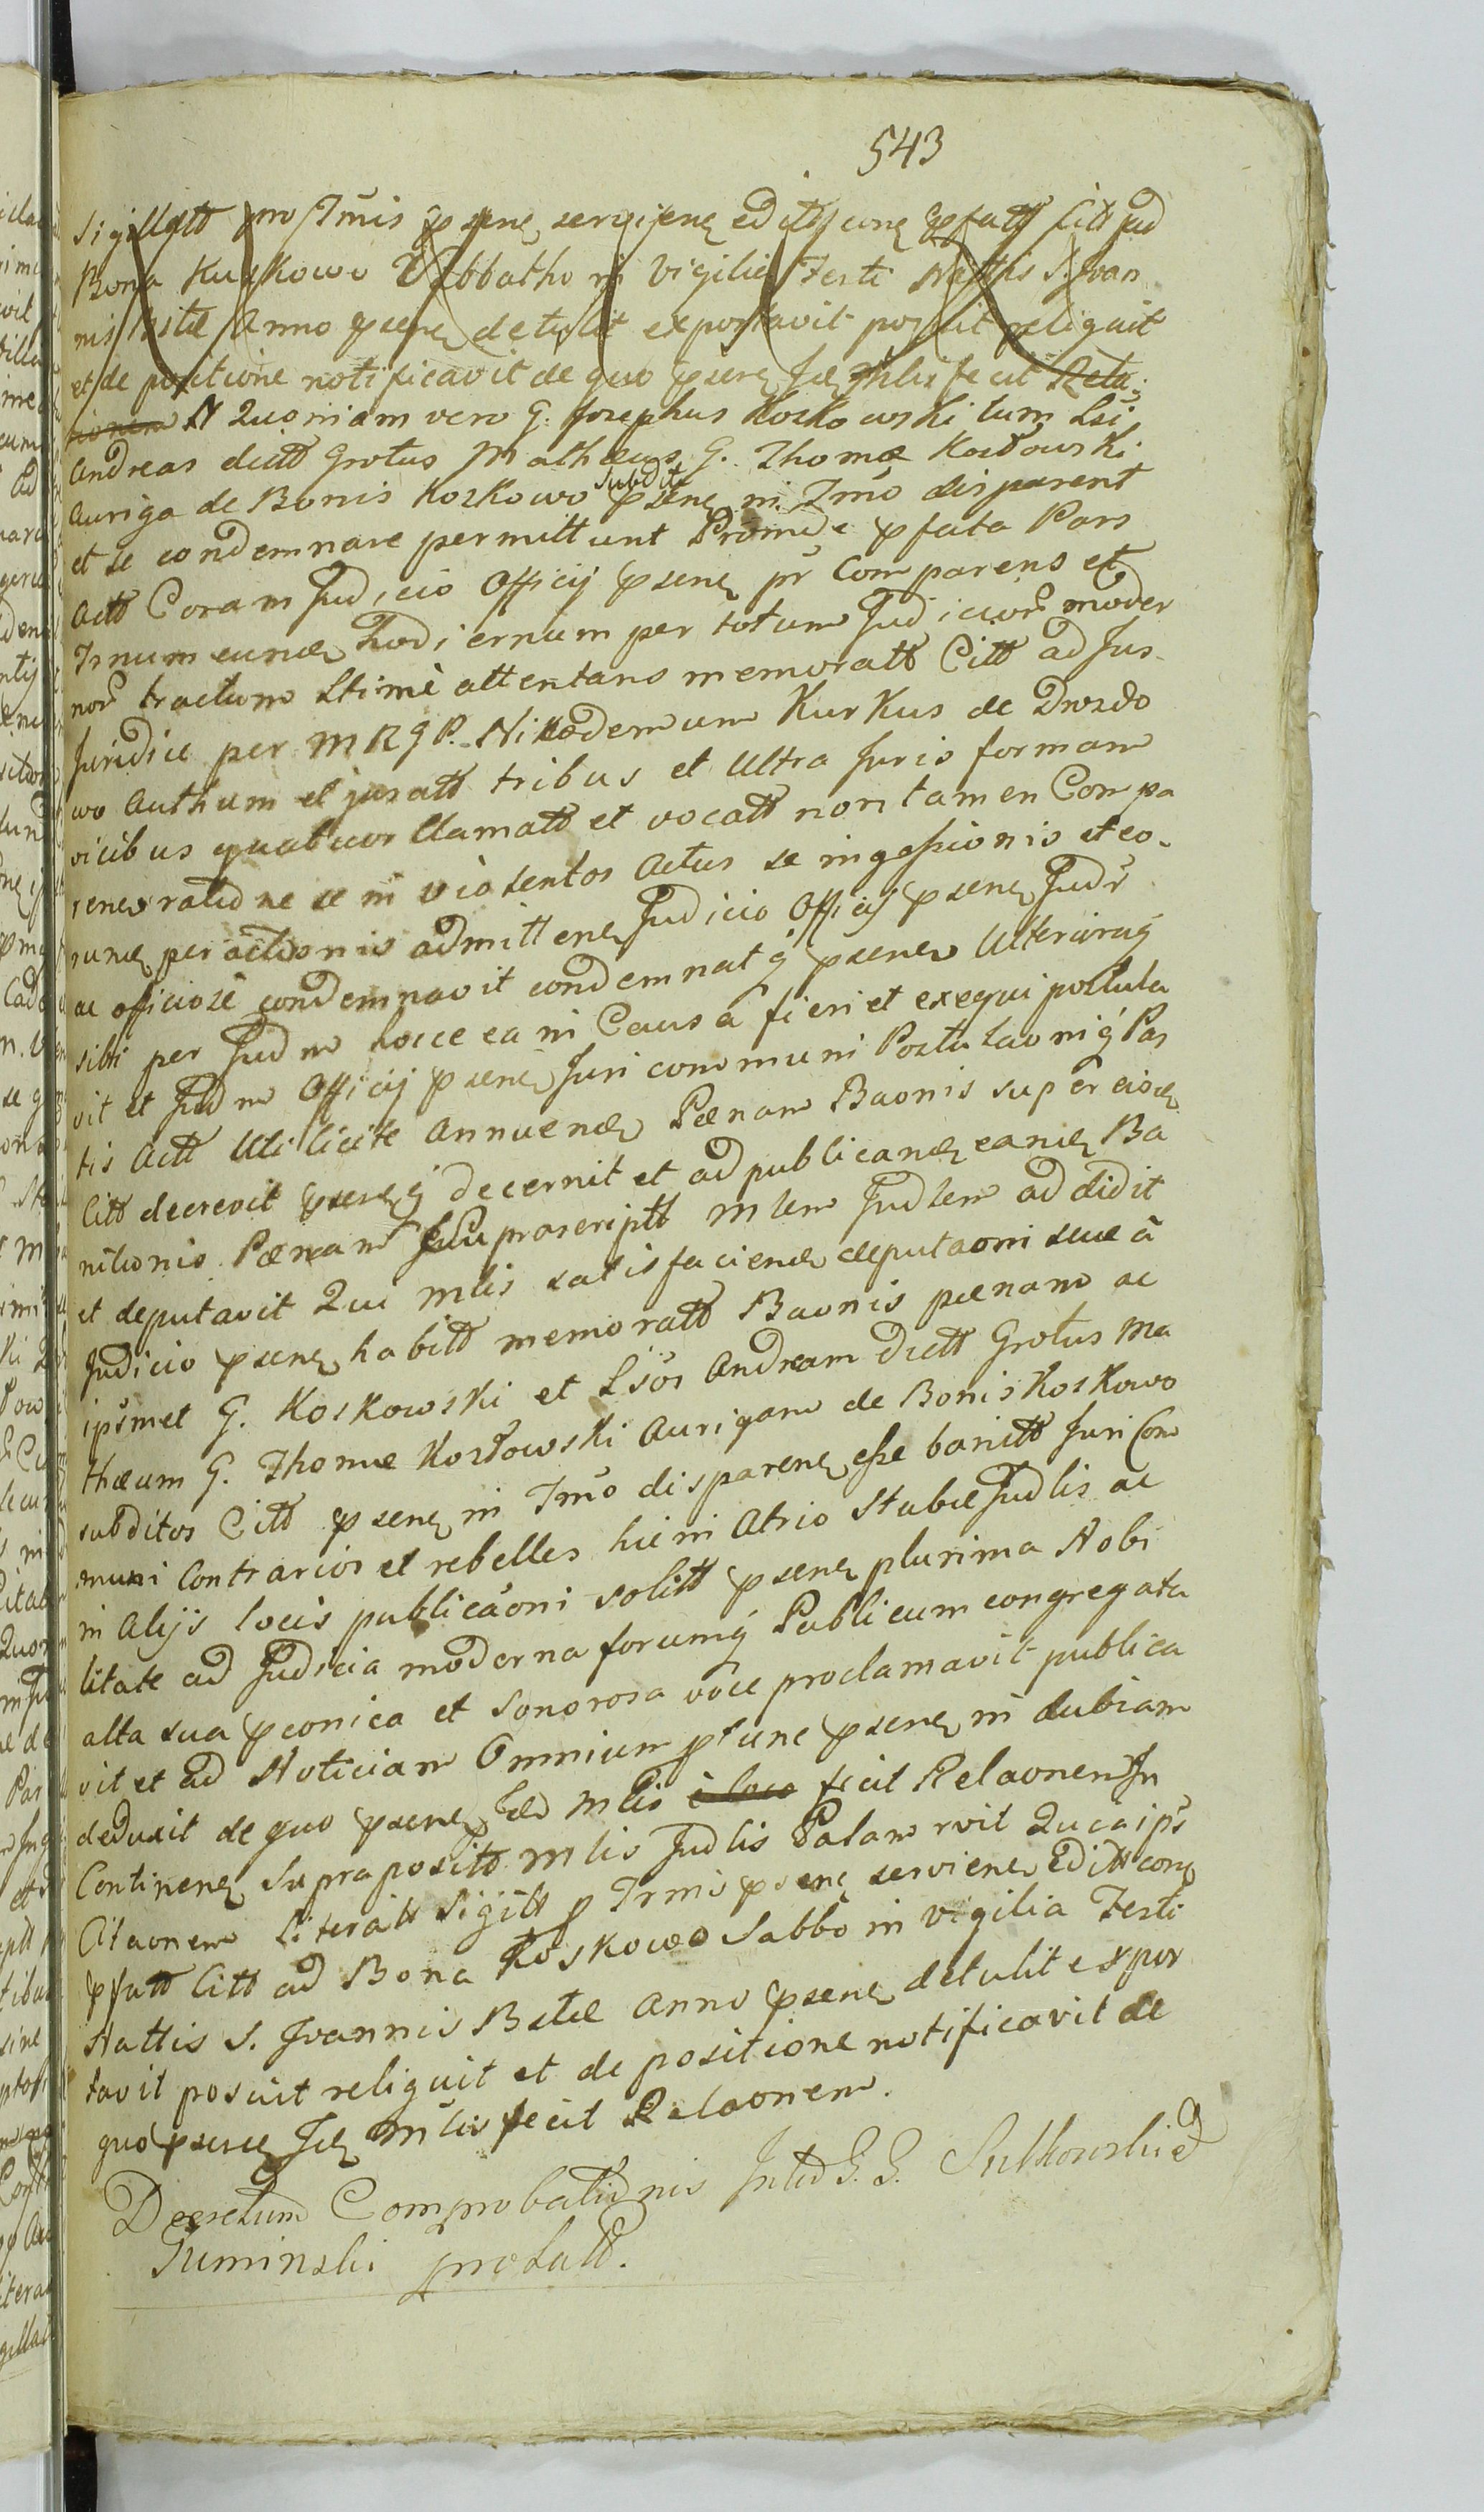 543
Sigillatt pro Tmis psene serviene edittione pfatt Citt ad
Bona Kuskowo Sabbatho in Vigilia Festi Nattis S. Joan
nis Bstae Anno psene detulit exportavit posuit reliquit
et de positione notificavit de quo psene Id Mlis fecit Rela
tionem N Quoniam vero G. Josephus Koskowski tum Lsi
Andreas dictt Grotus Mathaeus G. Thomae Kozłowski
Auriga de Bonis Koskowo subditi psene in Tmo disparent
et se condemnare permittunt Proinde pfata Pars
Actt Coram Judicio Officij psene pr Comparens et
Trnum eunde hodiernum per totum Judicior moder
nor tractum Ltime attentans memoratt Citt ad Jus
Juridice per MRGP. Nikodemum Kurkus de Drozdo
wo Authum et juratt tribus et ultra Juris formam
vicibus quatuor Clamatt et vocatt non tamen Compa
rene ratione se in violentos Actus se ingessionis et eo
runde peractionis admittene Judicio Officij psene Judr
ac officiose condemnavit condemnatq psene Ulteriusq
sibi per Judm hocce ea in Causa fieri et exequi postula
vit et Judm Officij psene Juri communi Postulaoniq Par
tis Actt Uti licite Annuende Paenam Baonis super eosde
Citt decrevit pseneq decernit et ad publicande eande Ba
nitionis Paenam suprascriptt Mlem Judlem addidit
et deputavit Qui Mlis satisfaciende deputaoni suae à
Judicio psene habitt memoratt Baonis paenam ac
ipsmet G. Koskowski et Lsos Andream dictt Grotus Ma
thaeum G. Thomae Kozłowski Aurigam de Bonis Koskowo
subditos Citt psene in Tmo disparene esse banitt Juri Com
muni Contrarios et rebelles hic in Atrio Stubae Judlis ac
in Alijs locis publicaoni solitt psene plurima Nobi
litate ad Judicia moderna forumq Publicum congregata
alta sua pconica et Sonorosa voce proclamavit publica
vit et ad Noticiam Omnium ptunc psene in dubiam
deduxit de quo psene Id Mlis è loco fecit Relaonem In
Continene Supraposittt Mlis Judlis Palam rvit Quia ips
Citaonem Literatt Sigitt p Trmis psene serviene Editt cone
pfatt Citt ad Bona Koskowo Sabbo in vigilia Festi
Nattis S. Joannis Bstae Anno psene detulit expor
tavit posuit reliquit et de positione notificavit de
quo psene Id Mlis fecit Relaonem.
Decretum Comprobationis Inter G. G. Sulkowski et
Tuminski prolatt.